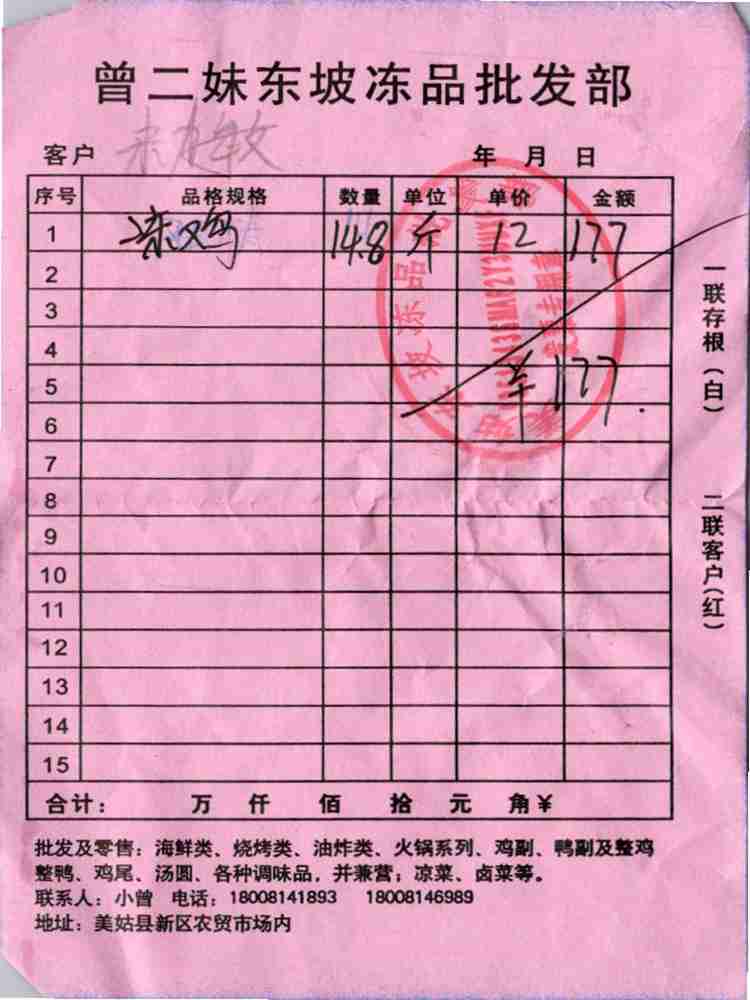 曾二妹东坡冻品批发部
客户 年 月 日
序号 品格规格 数量 单位 单价 金额
1 冻鸡 14.8 斤 12 177
2
3
4
5 ¥177.
6
7
8
9
10
11
12
13
14
15
合计： 万 仟 佰 拾 元 角¥
批发及零售：海鲜类、烧烤类、油炸类、火锅系列、鸡副、鸭副及整鸡
整鸭、鸡尾、汤圆、各种调味品，并兼营；凉菜、卤菜等。
联系人：小曾 电话：18008141893 18008146989
地址：美姑县新区农贸市场内
一联存根（白）
二联客户（红）